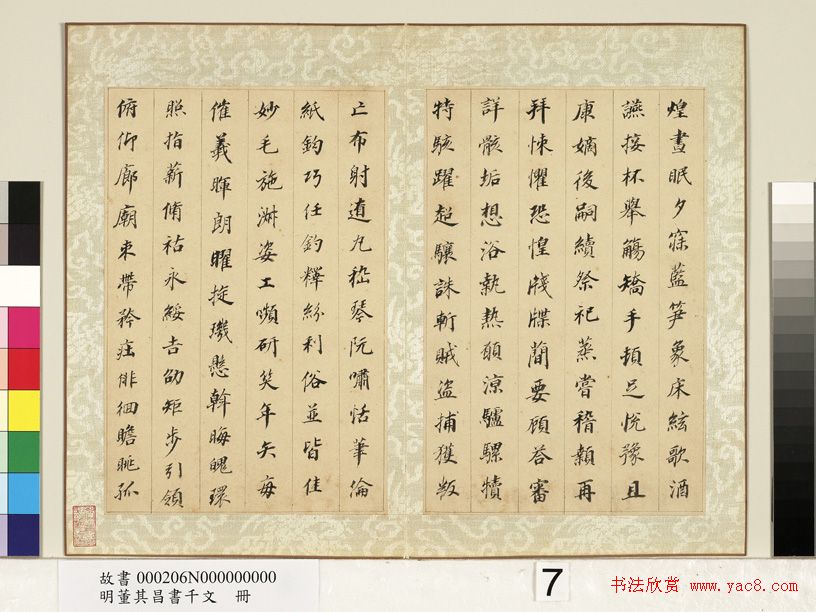 煌晝眠夕寐藍笋象床絃歌酒
讌接杯舉觴矯手頓足悅豫且
康嫡後嗣續祭祀蒸嘗稽顙再
拜悚懼恐惶牋牒簡要顧答審
詳骸垢想浴執熱願涼驢騾犢
特駭躍超驤誅斬賊盜捕獲叛
亡布射遼丸嵇琴阮嘯恬筆倫
紙鈞巧任釣釋紛利俗並皆佳
妙毛施淑姿工嚬研笑年矢每
催羲暉朗曜旋璣懸斡晦魄環
照指薪脩祜永綏吉劭矩步引領
俯仰廊廟束帶矜莊徘徊瞻眺孤
故書 000206N000000000
明董其昌書千文 冊
7
书法欣赏 www.yac8.com